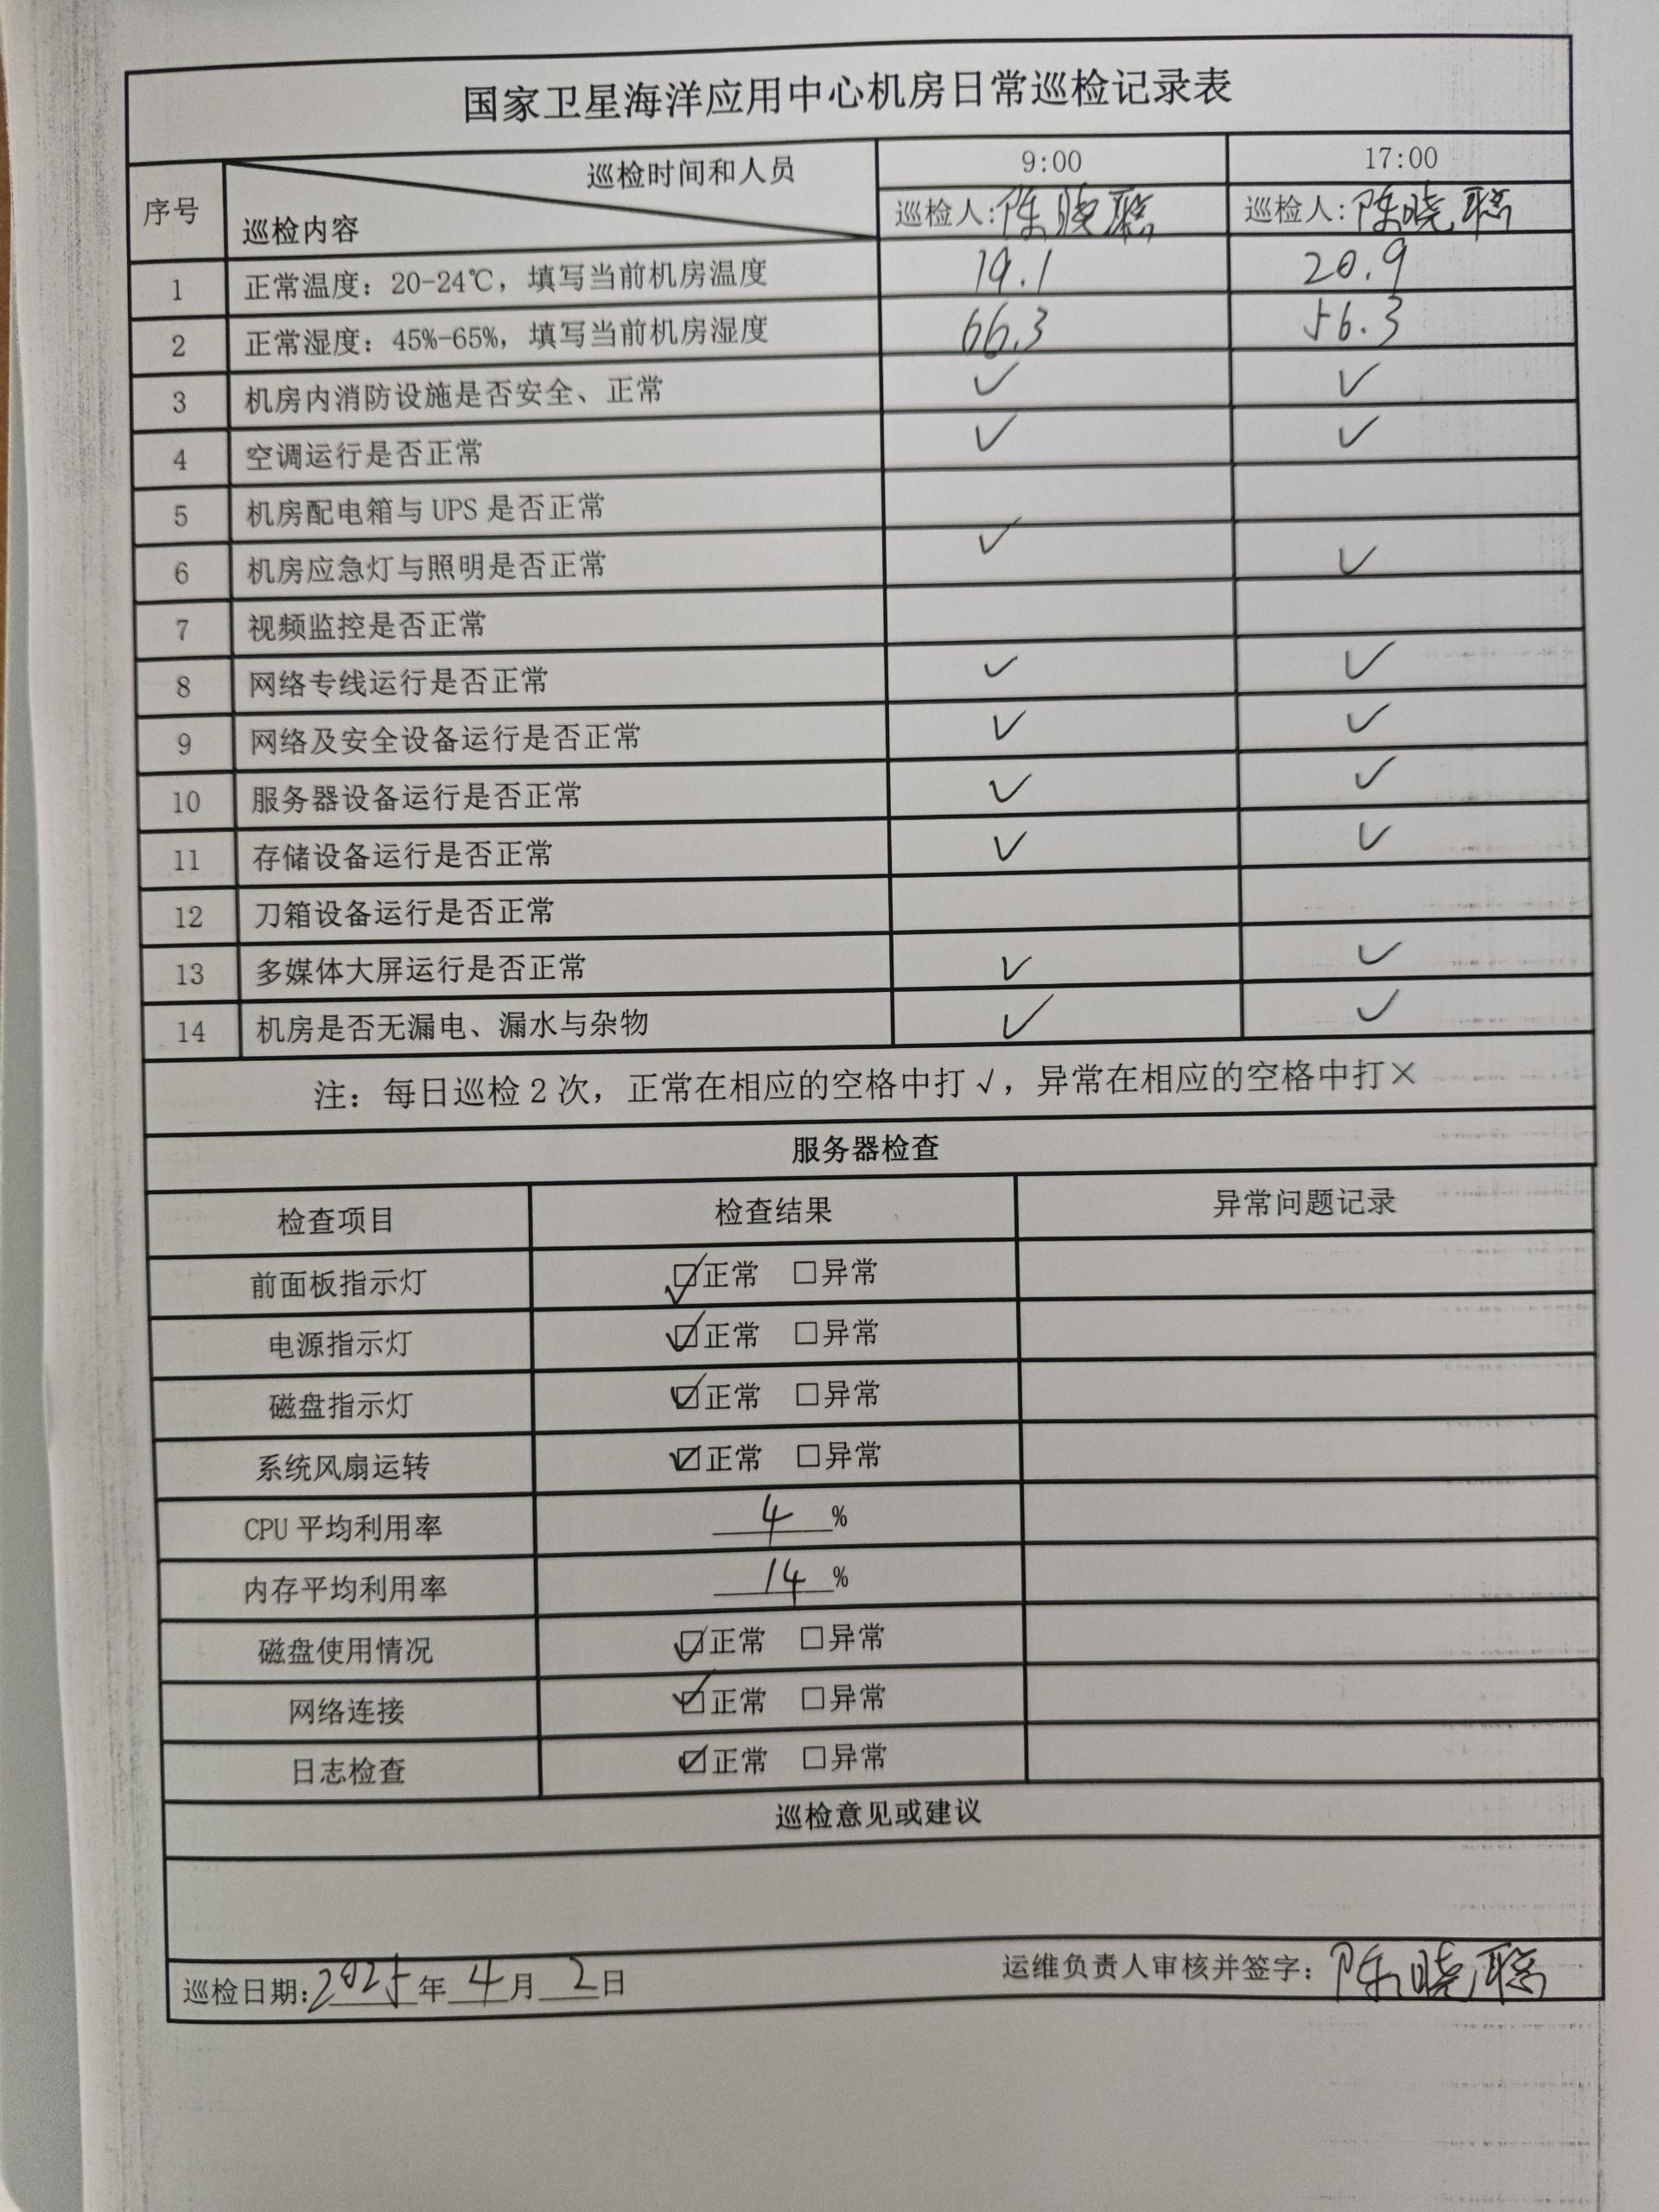 国家卫星海洋应用中心机房日常巡检记录表
序号 巡检时间和人员 巡检内容 9:00 17:00
巡检人:陈晓聪 巡检人:陈晓聪
1 正常温度：20-24℃，填写当前机房温度 19.1 20.9
2 正常湿度：45%-65%，填写当前机房湿度 66.3 56.3
3 机房内消防设施是否安全、正常 ✓ ✓
4 空调运行是否正常 ✓ ✓
5 机房配电箱与 UPS 是否正常
6 机房应急灯与照明是否正常 ✓ ✓
7 视频监控是否正常
8 网络专线运行是否正常 ✓ ✓
9 网络及安全设备运行是否正常 ✓ ✓
10 服务器设备运行是否正常 ✓ ✓
11 存储设备运行是否正常 ✓ ✓
12 刀箱设备运行是否正常
13 多媒体大屏运行是否正常 ✓ ✓
14 机房是否无漏电、漏水与杂物 ✓ ✓
注：每日巡检 2 次，正常在相应的空格中打√，异常在相应的空格中打×
服务器检查
检查项目 检查结果 异常问题记录
前面板指示灯 ☑正常 □异常
电源指示灯 ☑正常 □异常
磁盘指示灯 ☑正常 □异常
系统风扇运转 ☑正常 □异常
CPU 平均利用率 4 %
内存平均利用率 14 %
磁盘使用情况 ☑正常 □异常
网络连接 ☑正常 □异常
日志检查 ☑正常 □异常
巡检意见或建议
巡检日期:2025年 4月 2日 运维负责人审核并签字：陈晓聪